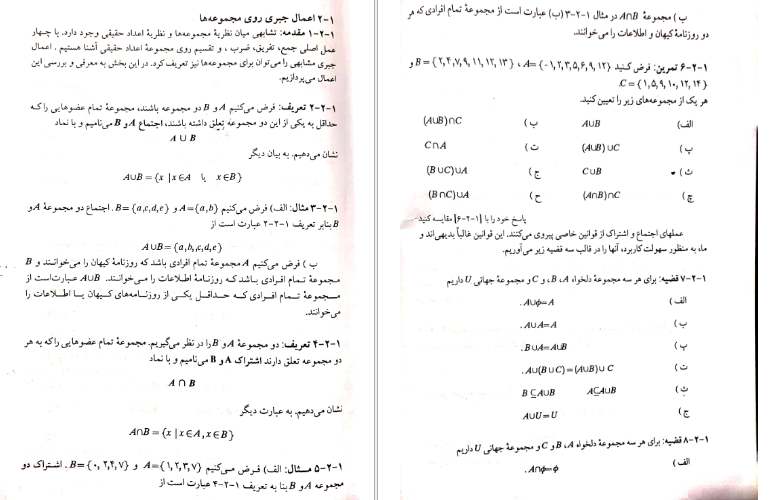 ۱-۲ اعمال جبری روی مجموعه‌ها
۱-۲-۱ مقدمه: تشابهی میان نظریهٔ مجموعه‌ها و نظریهٔ اعداد حقیقی وجود دارد. با چهار
عمل اصلی جمع، تفریق، ضرب، و تقسیم روی مجموعهٔ اعداد حقیقی آشنا هستیم. اعمال
جبری مشابهی را می‌توان برای مجموعه‌ها نیز تعریف کرد. در این بخش به معرفی و بررسی این
اعمال می‌پردازیم.
۱-۲-۲ تعریف: فرض می‌کنیم A و B دو مجموعه باشند، مجموعهٔ تمام عضوهایی را که
حداقل به یکی از این دو مجموعه تعلق داشته باشند، اجتماع A و B می‌نامیم و با نماد
A ∪ B
نشان می‌دهیم. به بیان دیگر
A∪B = {x | x∈A یا x∈B}
۱-۲-۳ مثال: الف) فرض می‌کنیم A={a,b} و B={a,c,d,e}. اجتماع دو مجموعهٔ A و
B بنابر تعریف ۱-۲-۲ عبارت است از
A∪B={a,b,c,d,e}
ب) فرض می‌کنیم A مجموعهٔ تمام افرادی باشد که روزنامهٔ کیهان را می‌خوانند و B
مجموعهٔ تمام افرادی باشد که روزنامهٔ اطلاعات را می‌خوانند. A∪B عبارت است از
مجموعهٔ تمام افرادی که حداقل یکی از روزنامه‌های کیهان یا اطلاعات را
می‌خوانند.
۱-۲-۴ تعریف: دو مجموعهٔ A و B را در نظر می‌گیریم. مجموعهٔ تمام عضوهایی را که به هر
دو مجموعه تعلق دارند اشتراک A و B می‌نامیم و با نماد
A ∩ B
نشان می‌دهیم. به عبارت دیگر
A∩B = {x | x∈A , x∈B}
۱-۲-۵ مثال: الف) فرض می‌کنیم A={۱,۲,۳,۷} و B={۰,۲,۴,۷}. اشتراک دو
مجموعه A و B بنا به تعریف ۱-۲-۴ عبارت است از
ب) مجموعهٔ A∩B در مثال ۱-۲-۳ (ب) عبارت است از مجموعهٔ تمام افرادی که هر
دو روزنامهٔ کیهان و اطلاعات را می‌خوانند.
۱-۲-۶ تمرین: فرض کنید A={-۱,۲,۳,۵,۶,۹,۱۲} ، B={۲,۴,۷,۹,۱۱,۱۲,۱۳} و
C={۱,۵,۹,۱۰,۱۲,۱۴}
هر یک از مجموعه‌های زیر را تعیین کنید.
الف) A∪B ب) (A∪B)∩C
پ) (A∪B)∪C ت) C∩A
ث) C∪B ج) (B∪C)∪A
چ) (A∩B)∩C ح) (B∩C)∪A
پاسخ خود را با [۱-۲-۶] مقایسه کنید.
عملهای اجتماع و اشتراک از قوانین خاصی پیروی می‌کنند. این قوانین غالباً بدیهی‌اند و
ما، به منظور سهولت کاربرد، آنها را در قالب سه قضیه زیر می‌آوریم.
۱-۲-۷ قضیه: برای هر سه مجموعهٔ دلخواه A، B، و C و مجموعهٔ جهانی U داریم
الف) A∪φ=A.
ب) A∪A=A.
پ) B∪A=A∪B.
ت) A∪(B∪C)=(A∪B)∪C.
ث) A⊆A∪B B⊆A∪B
ج) A∪U=U.
۱-۲-۸ قضیه: برای هر سه مجموعهٔ دلخواه A، B و C و مجموعهٔ جهانی U داریم
الف) A∩φ=φ.